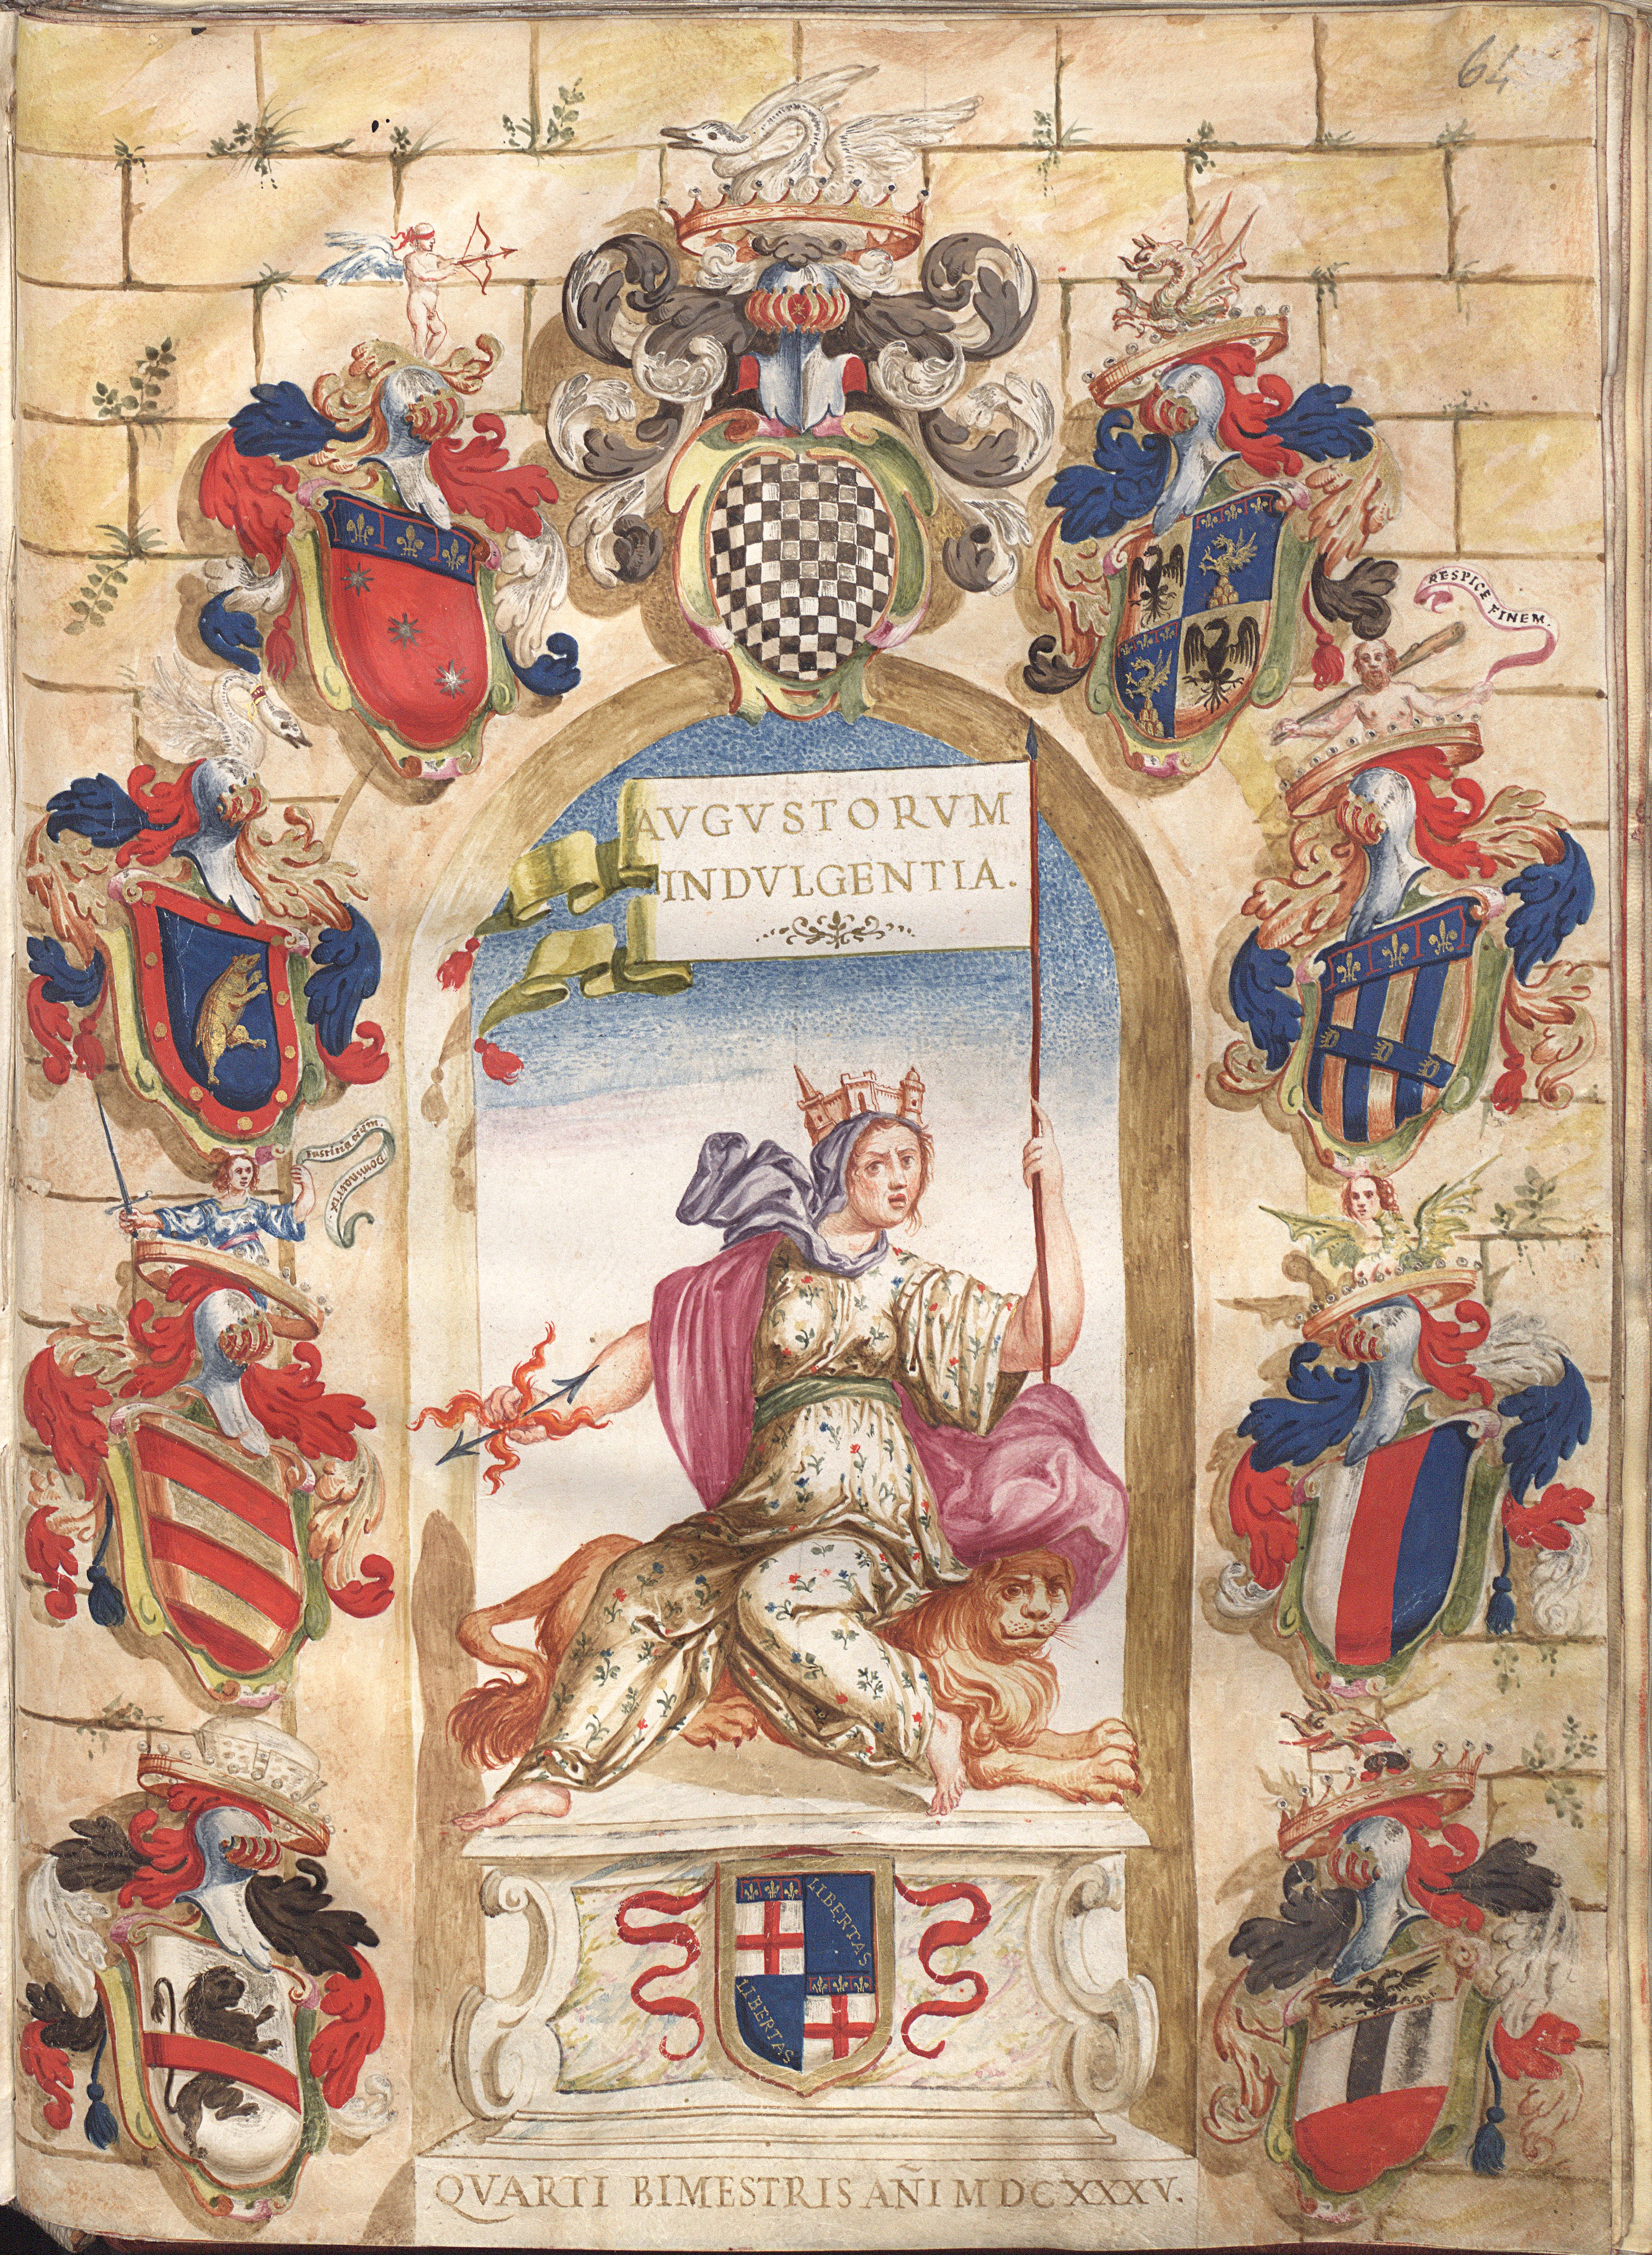 64
RESPICE FINEM.
AVGVSTORVM
INDVLGENTIA.
D D D
LIBERTAS
LIBERTAS
QVARTI BIMESTRIS AÑI MDCXXXV.